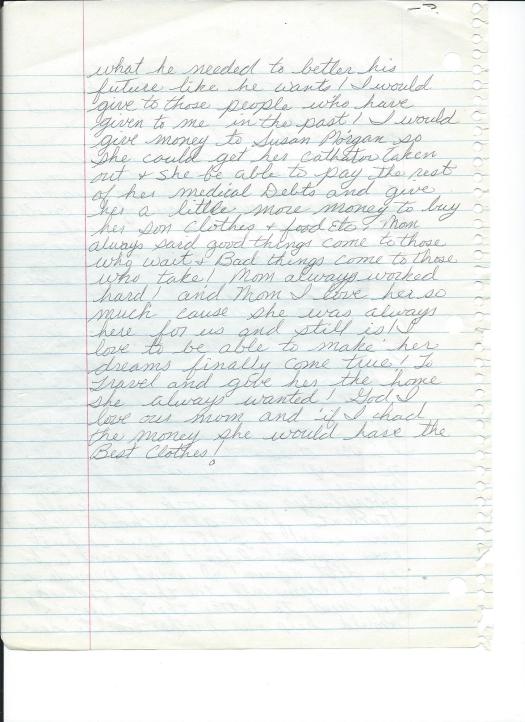 what he needed to better his
future like he wants! I would
give to those people who have
given to me in the past! I would
give money to Susan Morgan so
she could get her cathator taken
out & she be able to pay the rest
of her medical Debts and give
her a little more money to buy
her son clothes & food Etc! Mom
always said good things come to those
who wait & Bad things come to those
who take! Mom always worked
hard! and Mom I love her so
much cause she was always
here for us and still is! I
love to be able to make her
dreams finally come true! To
Travel and give her the home
she always wanted! God I
love our mom and if I had
the money she would have the
Best Clothes!